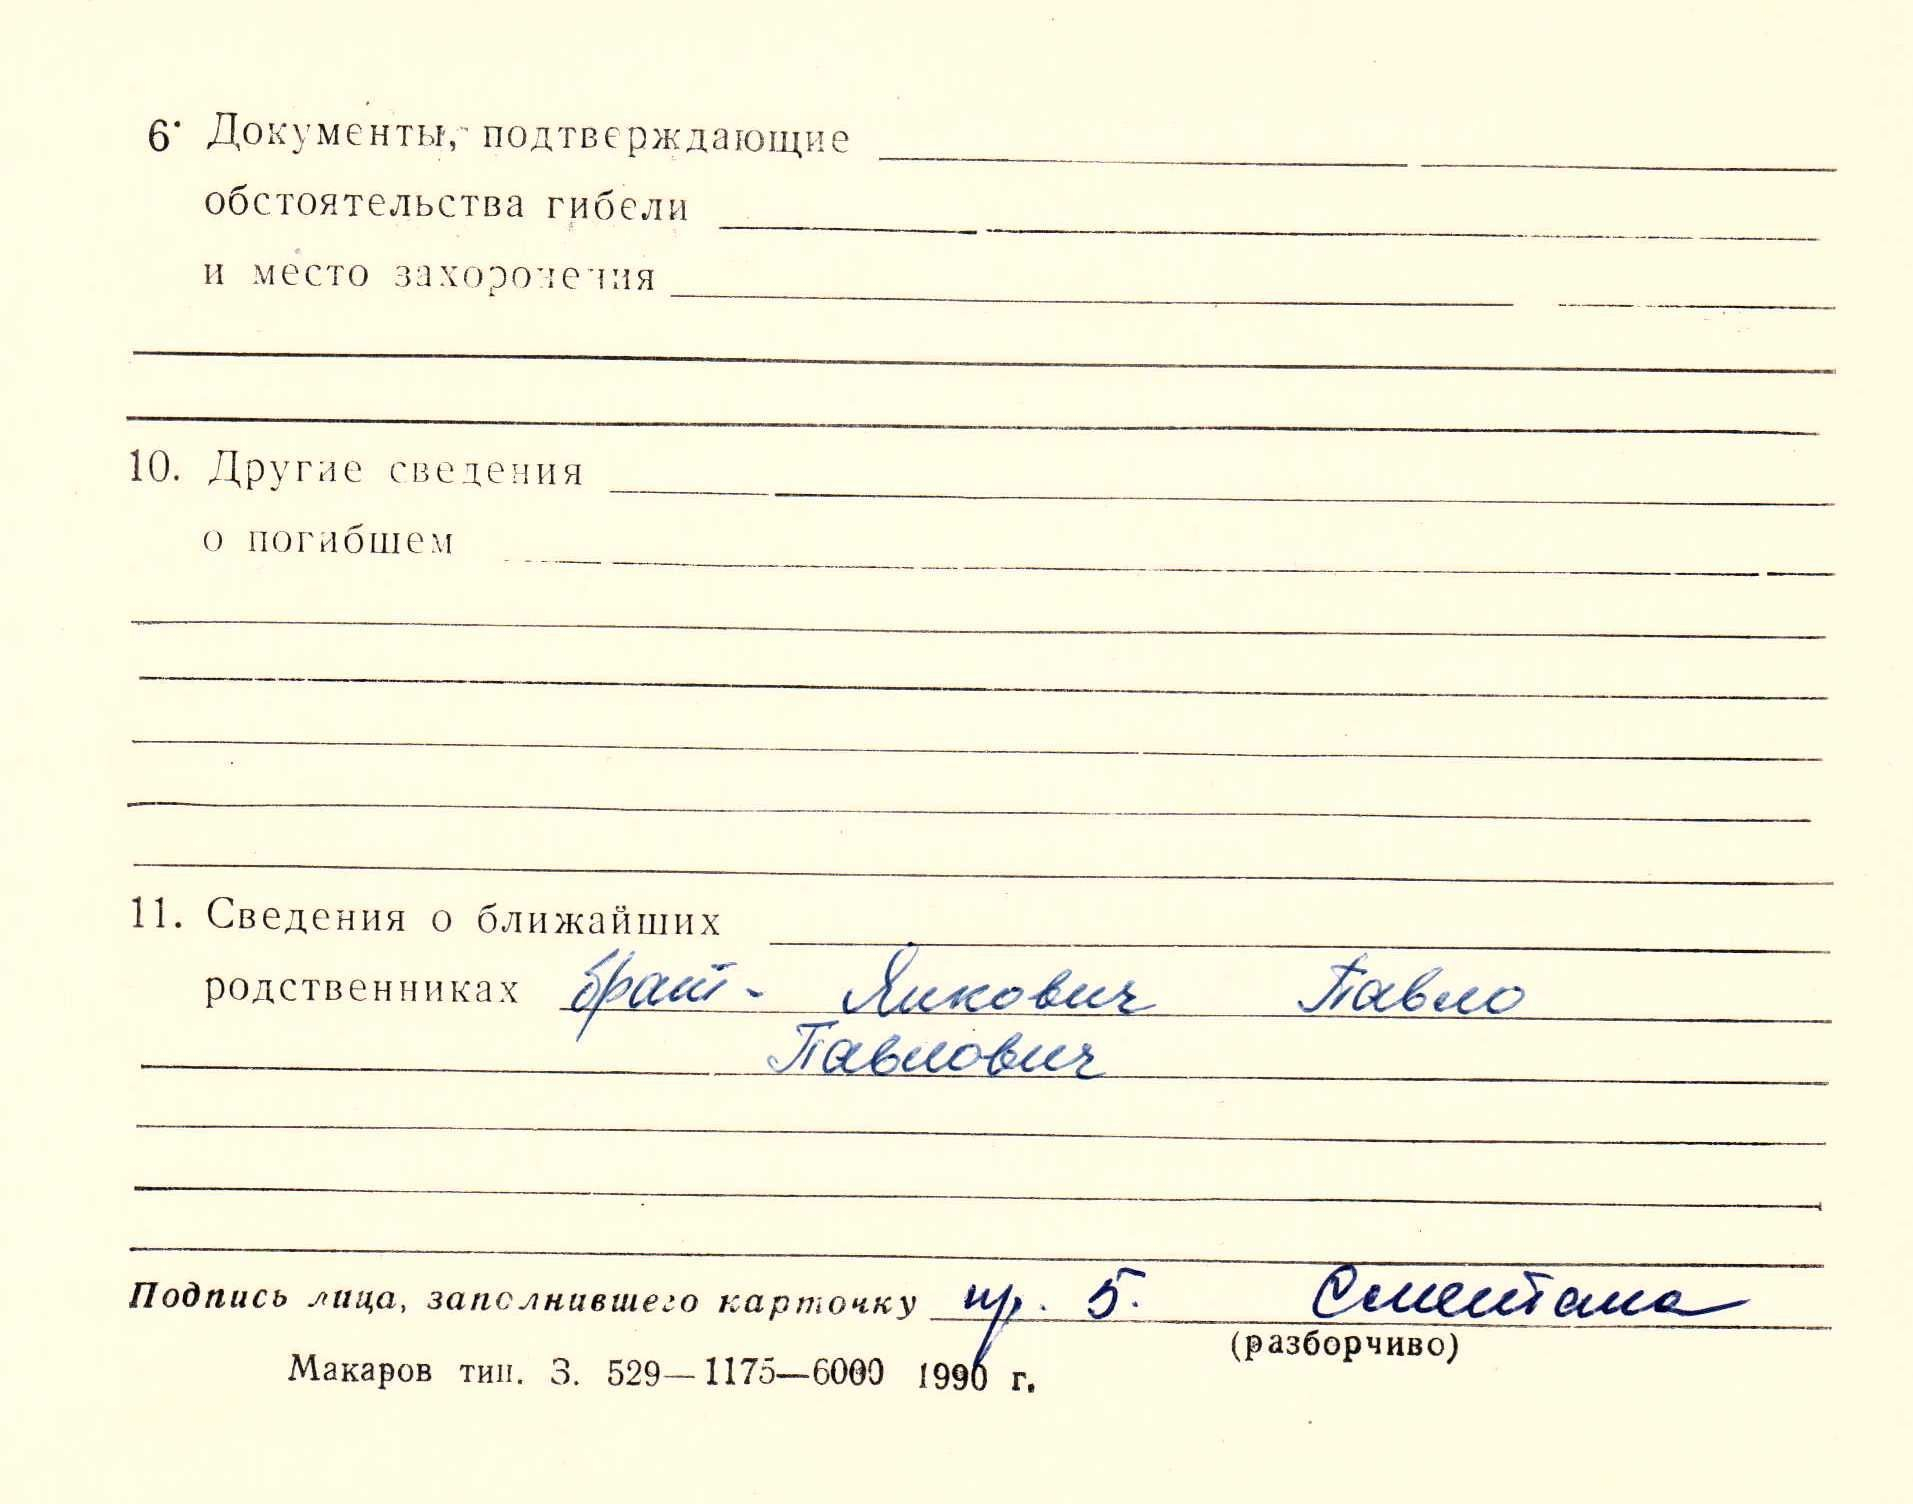 6. Документы, подтверждающие
обстоятельства гибели
и место захоронения
10. Другие сведения
о погибшем
11. Сведения о ближайших
родственниках брат - Янкович Павло
Павлович
Подпись лица, заполнившего карточку пр. 5. Сметана
(разборчиво)
Макаров тип. З. 529—1175—6000 1990 г.